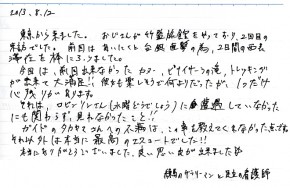 2013.8.12
東京から来ました。おじさんが竹盛旅館をやっており、2回目の
来訪でした。前回はあいにくと台風直撃の為、2日間の西表
滞在を棒に
今回は、前回出来なかったカヌー、ピナイサーラの滝、トレッキング
が出来て大満足!! 何も言うまでもなく何よりだったが、1つだけ
心残りがあります。
それは、ロビンソン
にも関わらず、見れなかったこと!!
ガイドのタカヤさんへの不満は、この事を教えてくれなかった点です。
それ以外は本当に最高の2日コースでした!!
本当にありがとうございました。良い思い出が出来ました
の と 足立の看護師